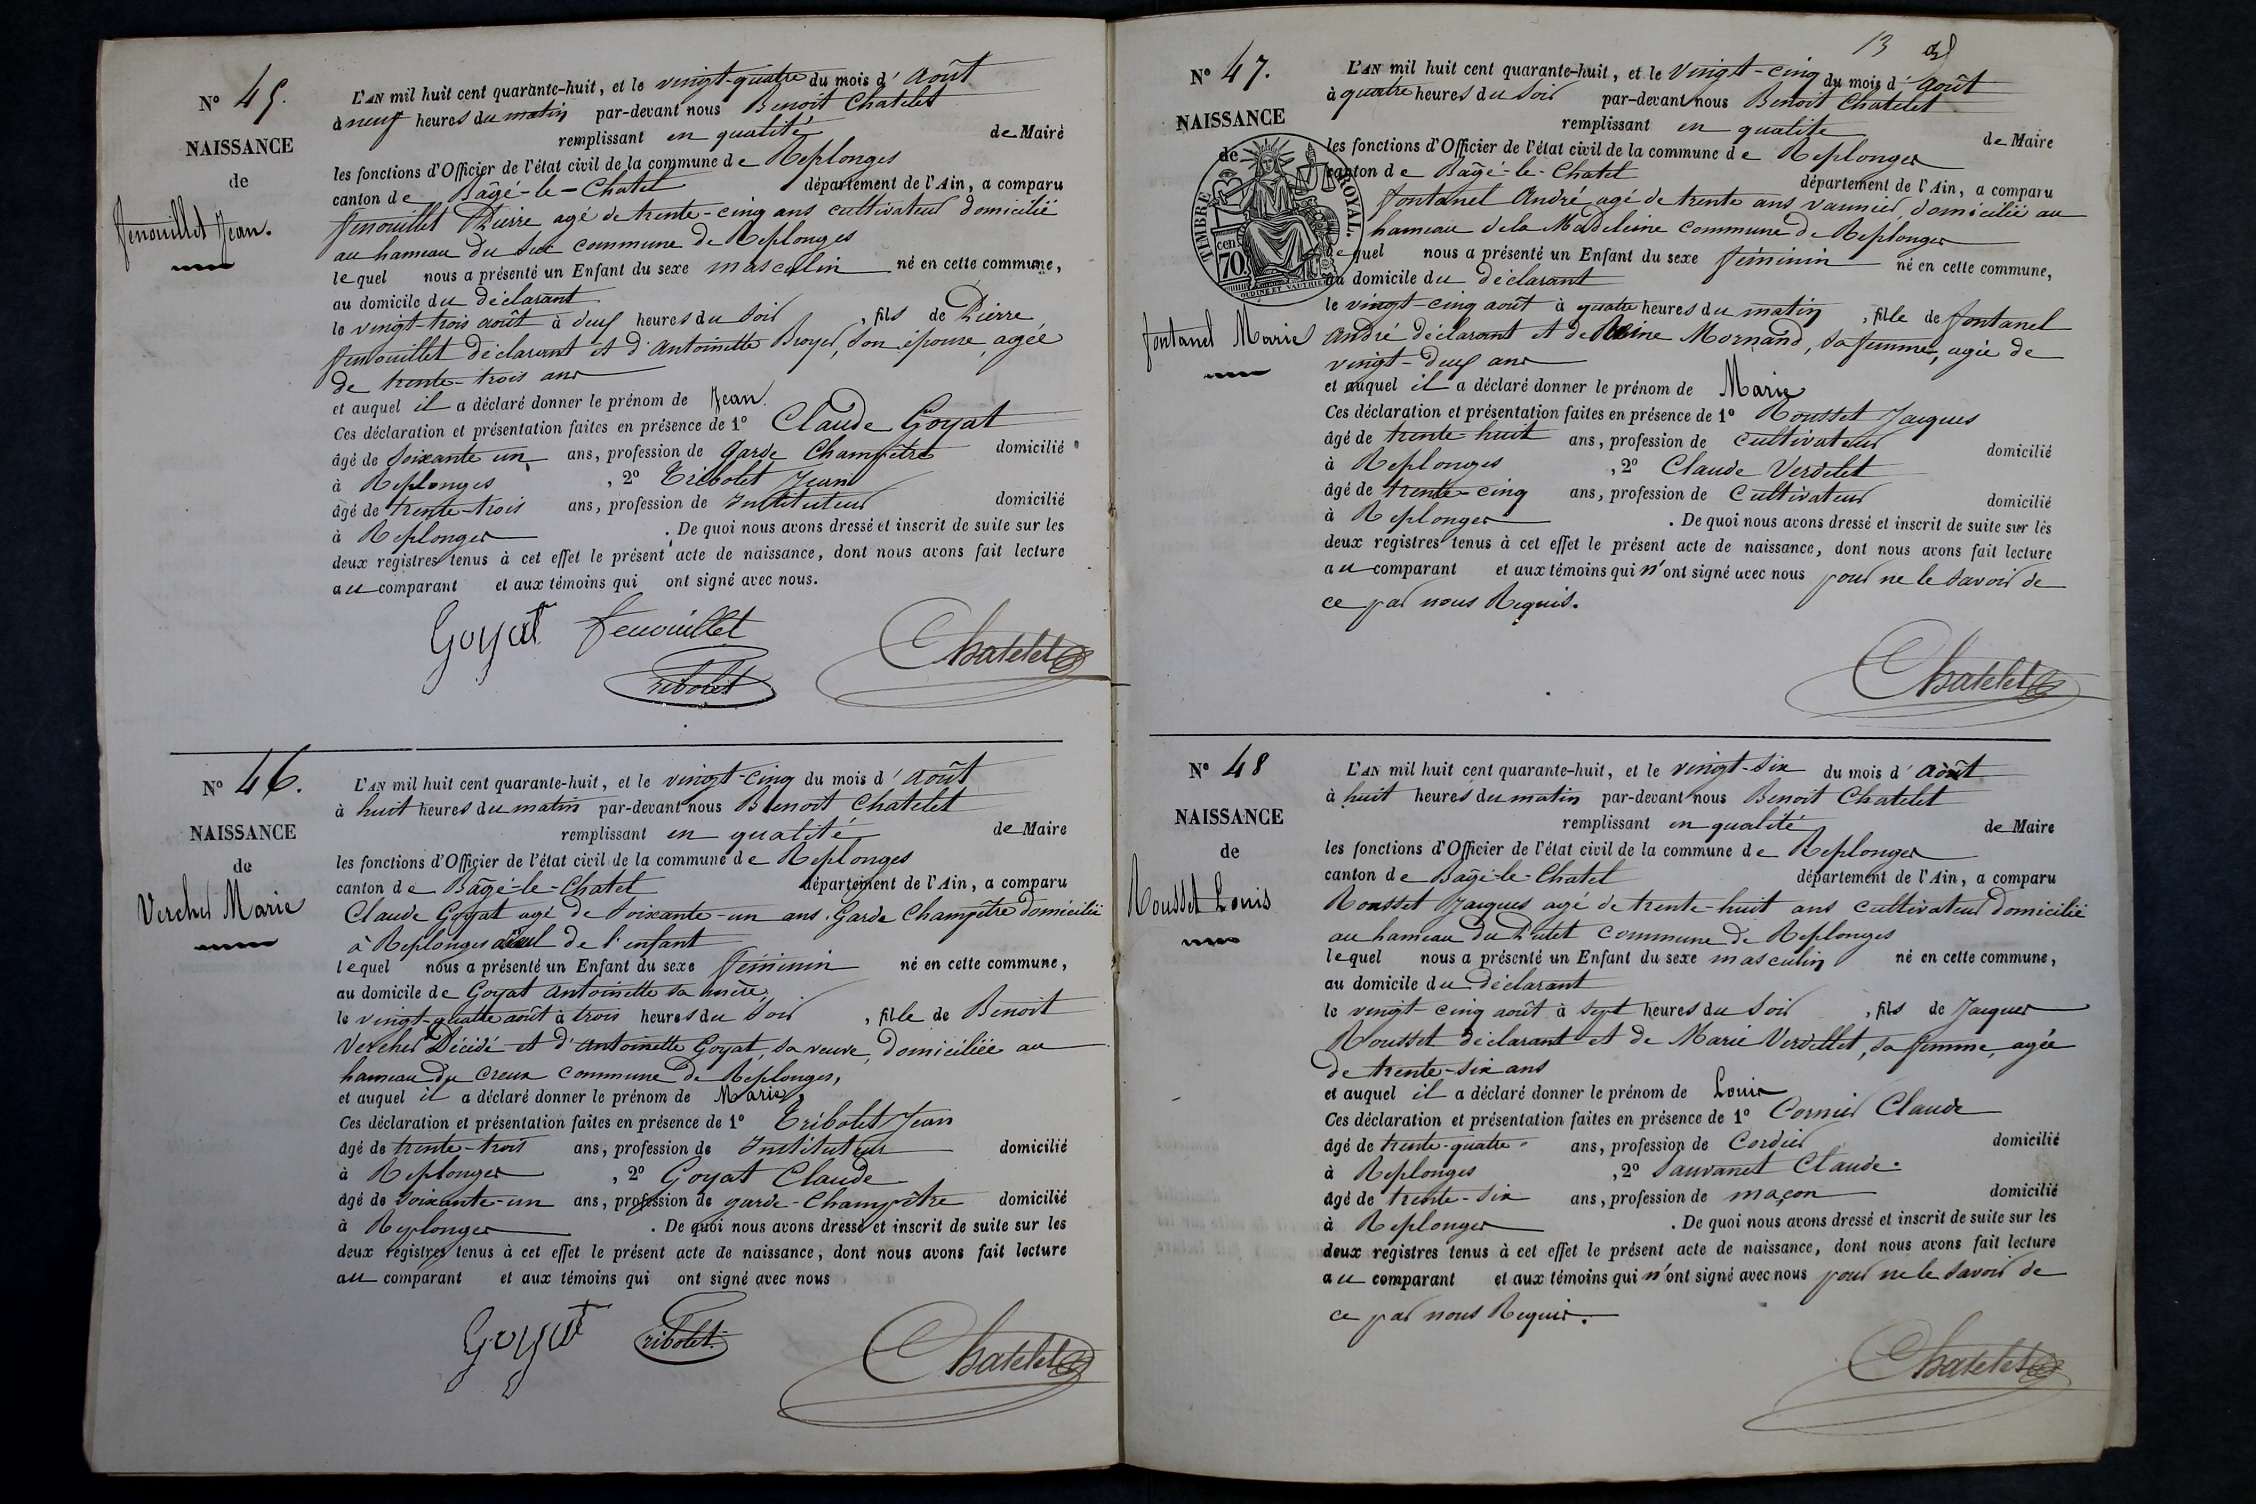 N° 45.
NAISSANCE
de
fenouillet Jean.
L'AN mil huit cent quarante-huit, et le vingt-quatre du mois d'août
à neuf heures du matin par-devant nous Benoit Chatelet
remplissant en qualité de Maire
les fonctions d'Officier de l'état civil de la commune de Replonges
canton de Bâgé-le-Chatel département de l'Ain, a comparu
fenouillet Pierre agé de trente-cinq ans cultivateur domicilié
au hameau du commune de Replonges
lequel nous a présenté un Enfant du sexe masculin né en cette commune,
au domicile du déclarant
le vingt-trois août à deux heures du soir, fils de Pierre
fenouillet déclarant et d'Antoinette Broyer, son épouse, agée
de trente-trois ans
et auquel il a déclaré donner le prénom de Jean.
Ces déclaration et présentation faites en présence de 1° Claude Goyat
âgé de soixante un ans, profession de garde Champêtre domicilié
à Replonges, 2° Tribolet Jean
âgé de trente-trois ans, profession de Instituteur domicilié
à Replonges. De quoi nous avons dressé et inscrit de suite sur les
deux registres tenus à cet effet le présent acte de naissance, dont nous avons fait lecture
au comparant et aux témoins qui ont signé avec nous.
Goyat fenouillet
Tribolet Chatelet
N° 46.
NAISSANCE
de
Vercher Marie
L'AN mil huit cent quarante-huit, et le vingt-cinq du mois d'août
à huit heures du matin par-devant nous Benoit Chatelet
remplissant en qualité de Maire
les fonctions d'Officier de l'état civil de la commune de Replonges
canton de Bâgé-le-Chatel département de l'Ain, a comparu
Claude Goyat agé de soixante-un ans, Garde Champêtre domicilié
à Replonges aïeul de l'enfant
lequel nous a présenté un Enfant du sexe féminin né en cette commune,
au domicile de Goyat Antoinette sa mère,
le vingt-quatre août à trois heures du soir, fille de Benoit
Vercher Décédé et d'Antoinette Goyat, sa veuve, domiciliée au
hameau du Creux commune de Replonges,
et auquel il a déclaré donner le prénom de Marie,
Ces déclaration et présentation faites en présence de 1° Tribolet Jean
âgé de trente-trois ans, profession de Instituteur domicilié
à Replonges, 2° Goyat Claude
âgé de soixante-un ans, profession de garde-Champêtre domicilié
à Replonges. De quoi nous avons dressé et inscrit de suite sur les
deux registres tenus à cet effet le présent acte de naissance, dont nous avons fait lecture
au comparant et aux témoins qui ont signé avec nous
Goyat Tribolet Chatelet
13
N° 47.
NAISSANCE
de
TIMBRE ROYAL.
70 cen.
OUDINÉ ET VAUTHIER
fontanel Marie
L'AN mil huit cent quarante-huit, et le vingt-cinq du mois d'août
à quatre heures du soir par-devant nous Benoit Chatelet
remplissant en qualité de Maire
les fonctions d'Officier de l'état civil de la commune de Replonges
canton de Bâgé-le-Chatel département de l'Ain, a comparu
fontanel André, agé de trente ans vannier, domicilié au
hameau de la Madeleine commune de Replonges
lequel nous a présenté un Enfant du sexe féminin né en cette commune,
au domicile du déclarant
le vingt-cinq août à quatre heures du matin, fille de fontanel
André déclarant et de Reine Mornand, sa femme, agée de
vingt-deux ans
et auquel il a déclaré donner le prénom de Marie
Ces déclaration et présentation faites en présence de 1° Rousset Jacques
âgé de trente huit ans, profession de cultivateur domicilié
à Replonges, 2° Claude Verdelet
âgé de trente-cinq ans, profession de Cultivateur domicilié
à Replonges. De quoi nous avons dressé et inscrit de suite sur les
deux registres tenus à cet effet le présent acte de naissance, dont nous avons fait lecture
au comparant et aux témoins qui n'ont signé avec nous pour ne le savoir de
ce par nous Requis.
Chatelet
N° 48
NAISSANCE
de
Rousset Louis
L'AN mil huit cent quarante-huit, et le vingt-six du mois d'août
à huit heures du matin par-devant nous Benoit Chatelet
remplissant en qualité de Maire
les fonctions d'Officier de l'état civil de la commune de Replonges
canton de Bâgé-le-Chatel département de l'Ain, a comparu
Rousset Jacques agé de trente-huit ans cultivateur domicilié
au hameau du commune de Replonges
lequel nous a présenté un Enfant du sexe masculin né en cette commune,
au domicile du Déclarant
le vingt-cinq août à sept heures du soir, fils de Jacques
Rousset déclarant et de Marie Verdellet, sa femme, agée
de trente-six ans
et auquel il a déclaré donner le prénom de Louis
Ces déclaration et présentation faites en présence de 1° Cornier Claude
âgé de trente-quatre ans, profession de Cordier domicilié
à Replonges, 2° Sauvanet Claude.
âgé de trente-six ans, profession de maçon domicilié
à Replonges. De quoi nous avons dressé et inscrit de suite sur les
deux registres tenus à cet effet le présent acte de naissance, dont nous avons fait lecture
au comparant et aux témoins qui n'ont signé avec nous pour ne le savoir de
ce par nous Requis.
Chatelet